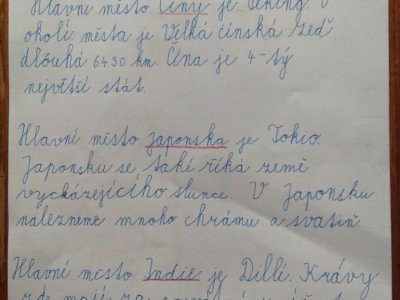 Hlavní město Číny je Peking. V
okolí města je Velká čínská zeď
dlouhá 6430 km. Čína je 4-tý
největší stát.
Hlavní město japonska je Tokio.
Japonsku se také říká země
vycházejícího slunce. V Japonsku
nalezneme mnoho chrámu a svatiň.
Hlavní město Indie je Dillí. Krávy
zde mají za